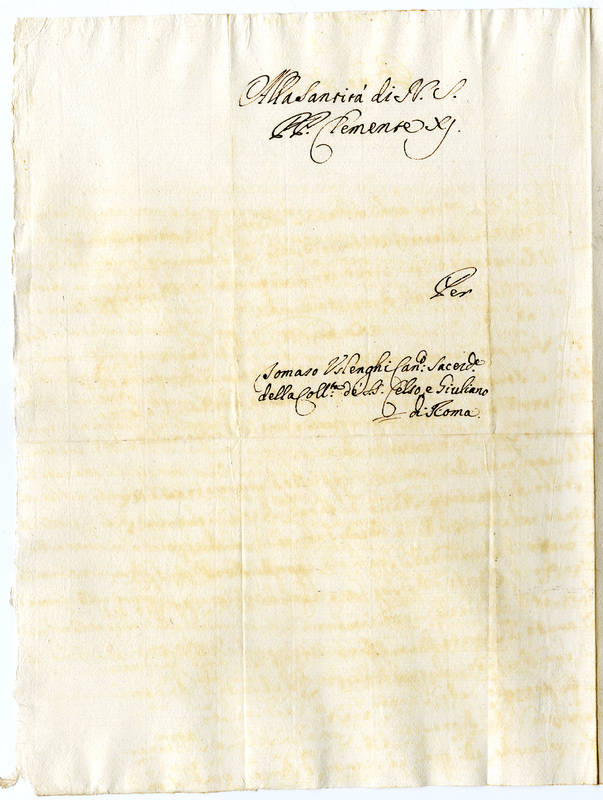 Alla Santità di N. S.
PP. Clemente XI.
Per
Tomaso Valenghi Can:º Sacerd:e
della Coll:ta de' SS. Celso, e Giuliano
di Roma.